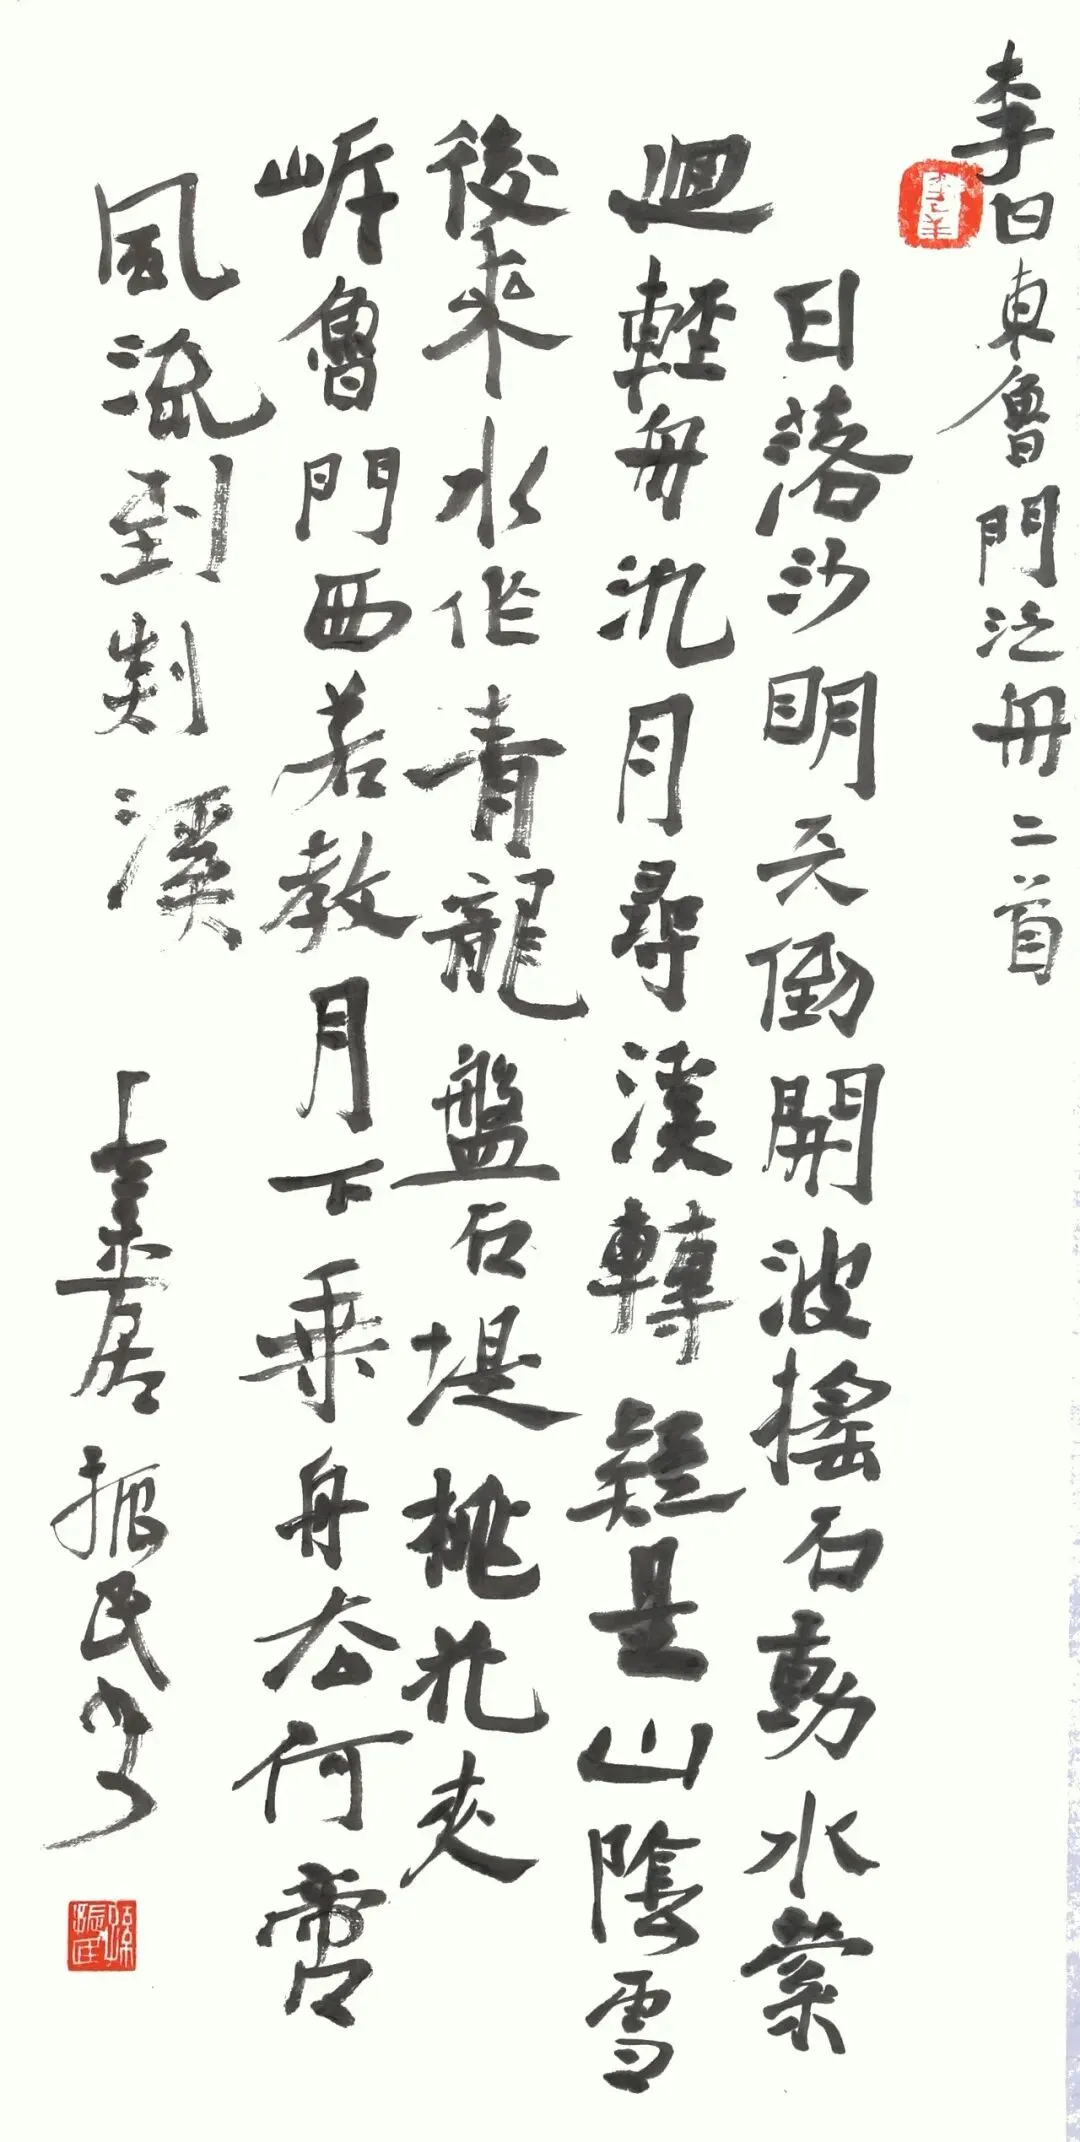 李白東魯門泛舟二首
日落沙明天倒開波搖石動水縈
迴輕舟汎月尋溪轉疑是山陰雪
後來水作青龍盤石堤桃花夾
岍魯門西若教月下乘舟去何啻
風流到剡溪
素居振民书
孫振民